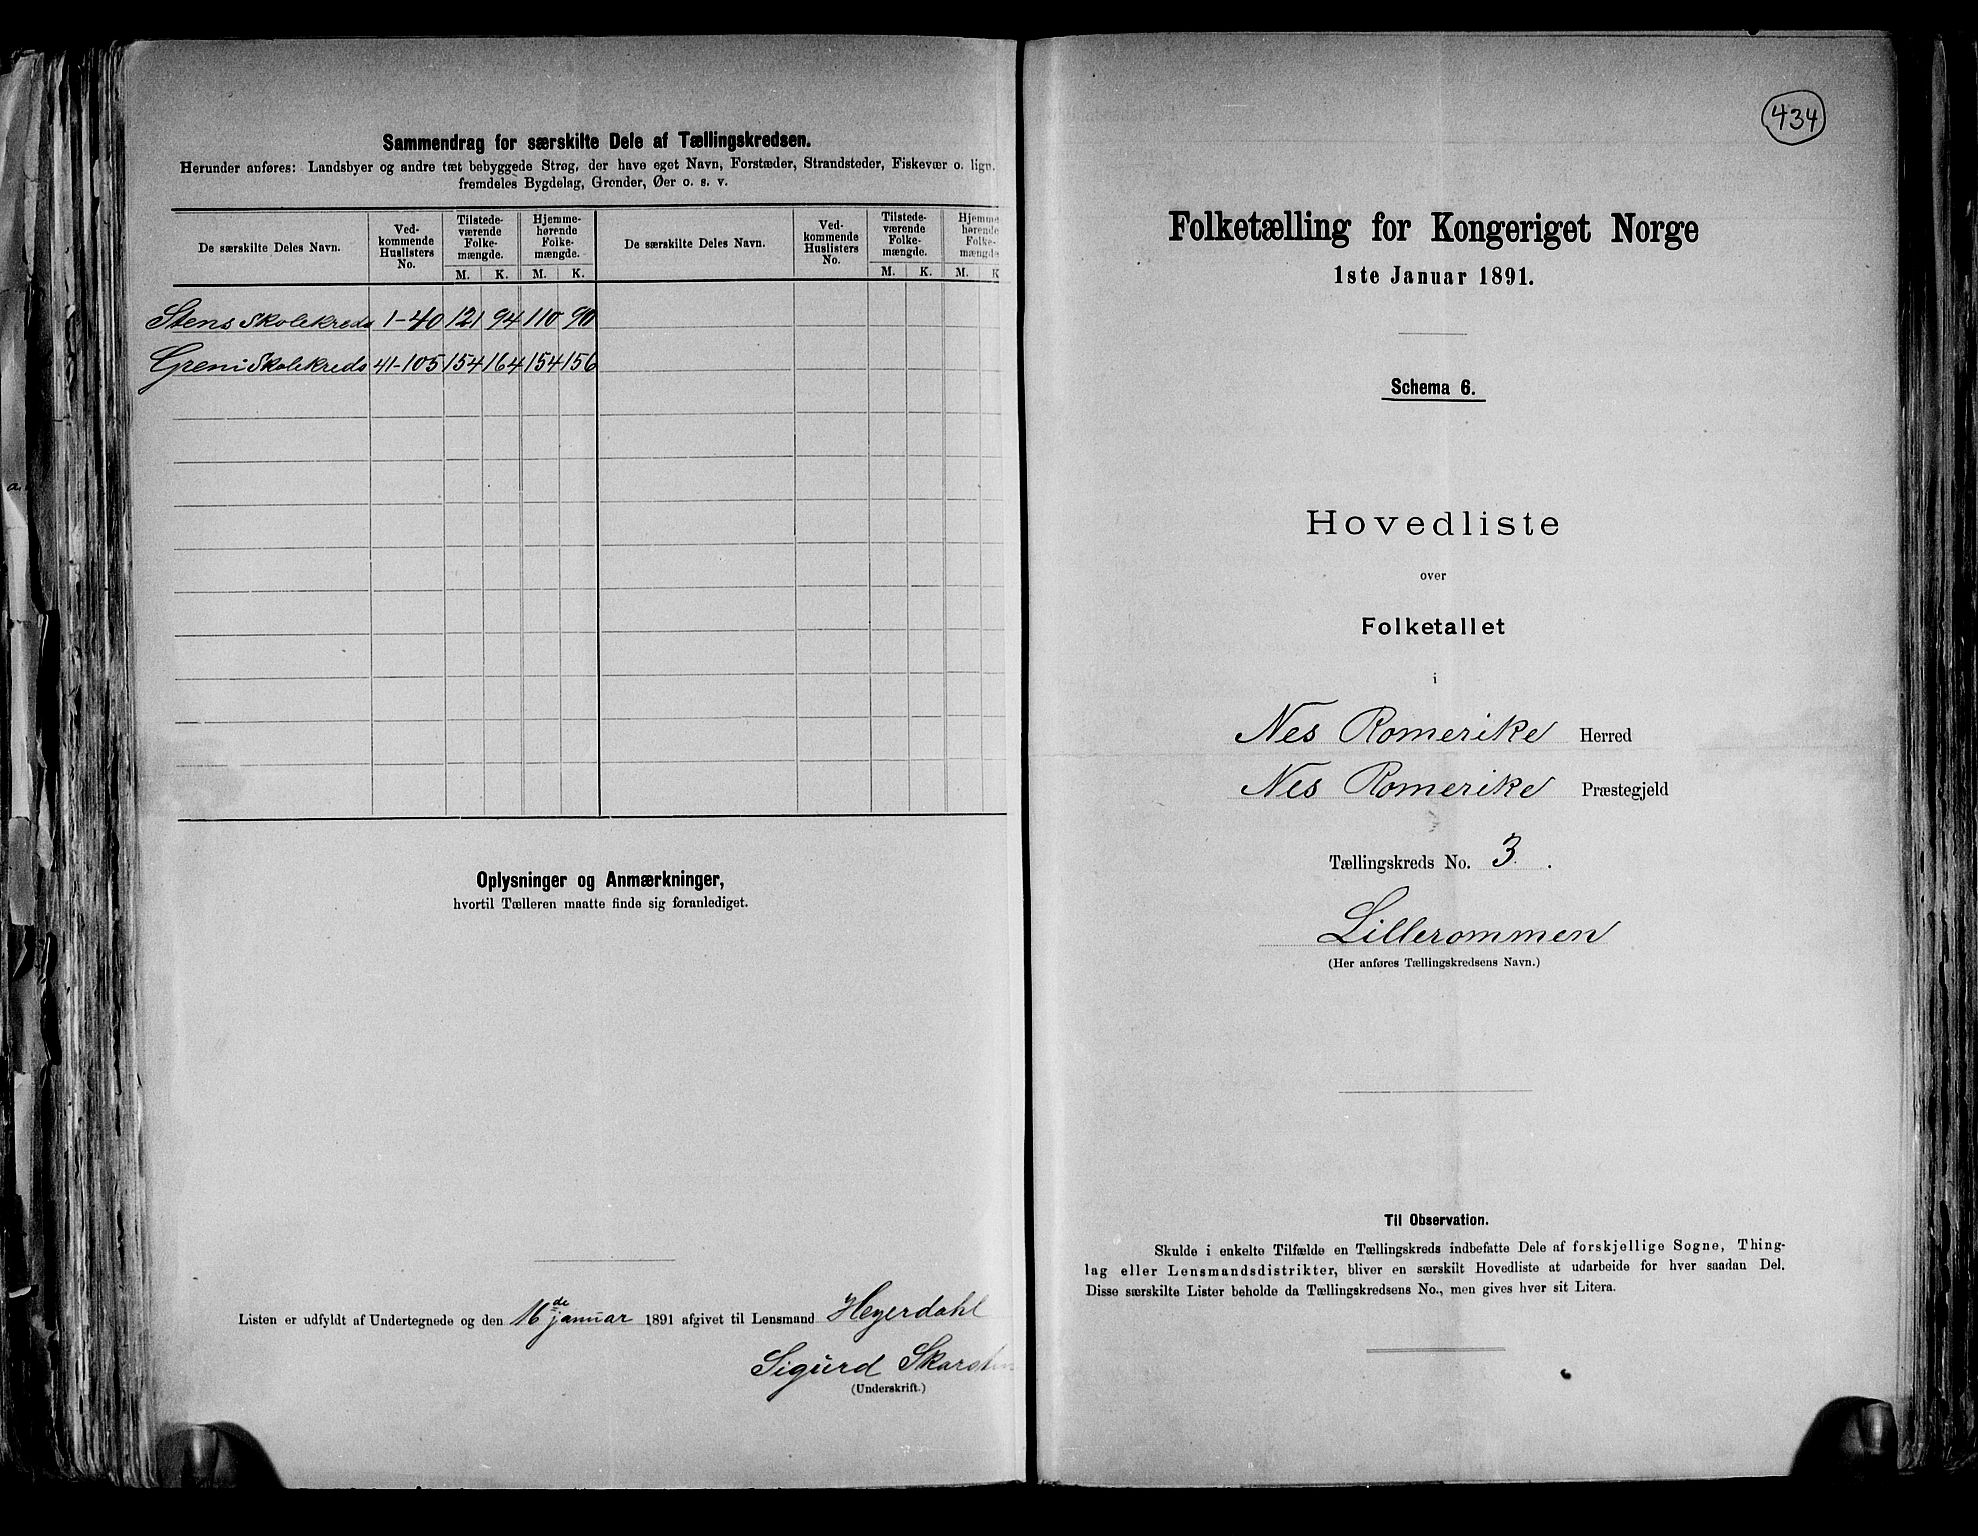 Sammendrag for særskilte Dele af Tællingskredsen.
Herunder anføres: Landsbyer og andre tæt bebyggede Strøg, der have eget Navn, Forstæder, Strandsteder, Fiskevær o. lign.
fremdeles Bygdelag, Grender, Øer o. s. v.
De særskilte Deles Navn.
Ved-
kommende
Huslisters
No.
Tilstede-
værende
Folke-
mængde.
Hjemme-
hørende
Folke-
mængde.
De særskilte Deles Navn.
Ved-
kommende
Huslisters
No.
Tilstede-
værende
Folke-
mængde.
Hjemme-
hørende
Folke-
mængde
M. K. M. K. M. K. M. K
Stens Skolekreds 1-40 121 94 110 90
Greni Skolekreds 41-105 154 164 154 156
Oplysninger og Anmærkninger,
hvortil Tælleren maatte finde sig foranlediget.
Listen er udfyldt af Undertegnede og den 16de januar 1891 afgivet til Lensmand Heyerdahl
Sigurd
(Underskrift.)
434
Folketælling for Kongeriget Norge
1ste Januar 1891.
Schema 6.
Hovedliste
over
Folketallet
i
Nes Romerike Herred
Nes Romerike Præstegjeld
Tællingskreds No. 3.
Lillerommen
(Her anføres Tællingskredsens Navn.)
Til Observation.
Skulde i enkelte Tilfælde en Tællingskreds indbefatte Dele af forskjellige Sogne, Thing-
lag eller Lensmandsdistrikter, bliver en særskilt Hovedliste at udarbeide for hver saadan Del.
Disse særskilte Lister beholde da Tællingskredsens No., men gives hver sit Litera.